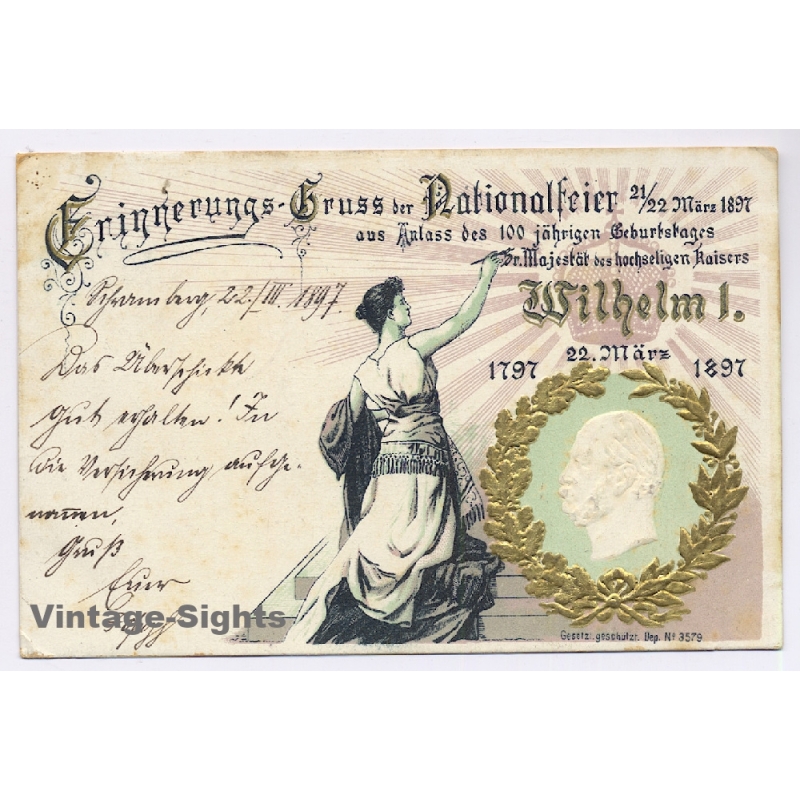 Erinnerungs-Gruss der Nationalfeier 21/22 März 1897
aus Anlass des 100 jährigen Geburtstages
Sr. Majestät des hochseligen Kaisers
Wilhelm I.
22. März
1797 1897
Schramberg, 22./III. 1897.
Das Überschickte
gut erhalten! In
die Versicherung aufge-
nommen.
Gruß
Euer
Vintage-Sights
Gesetzl. geschützt. Dep. No 3579